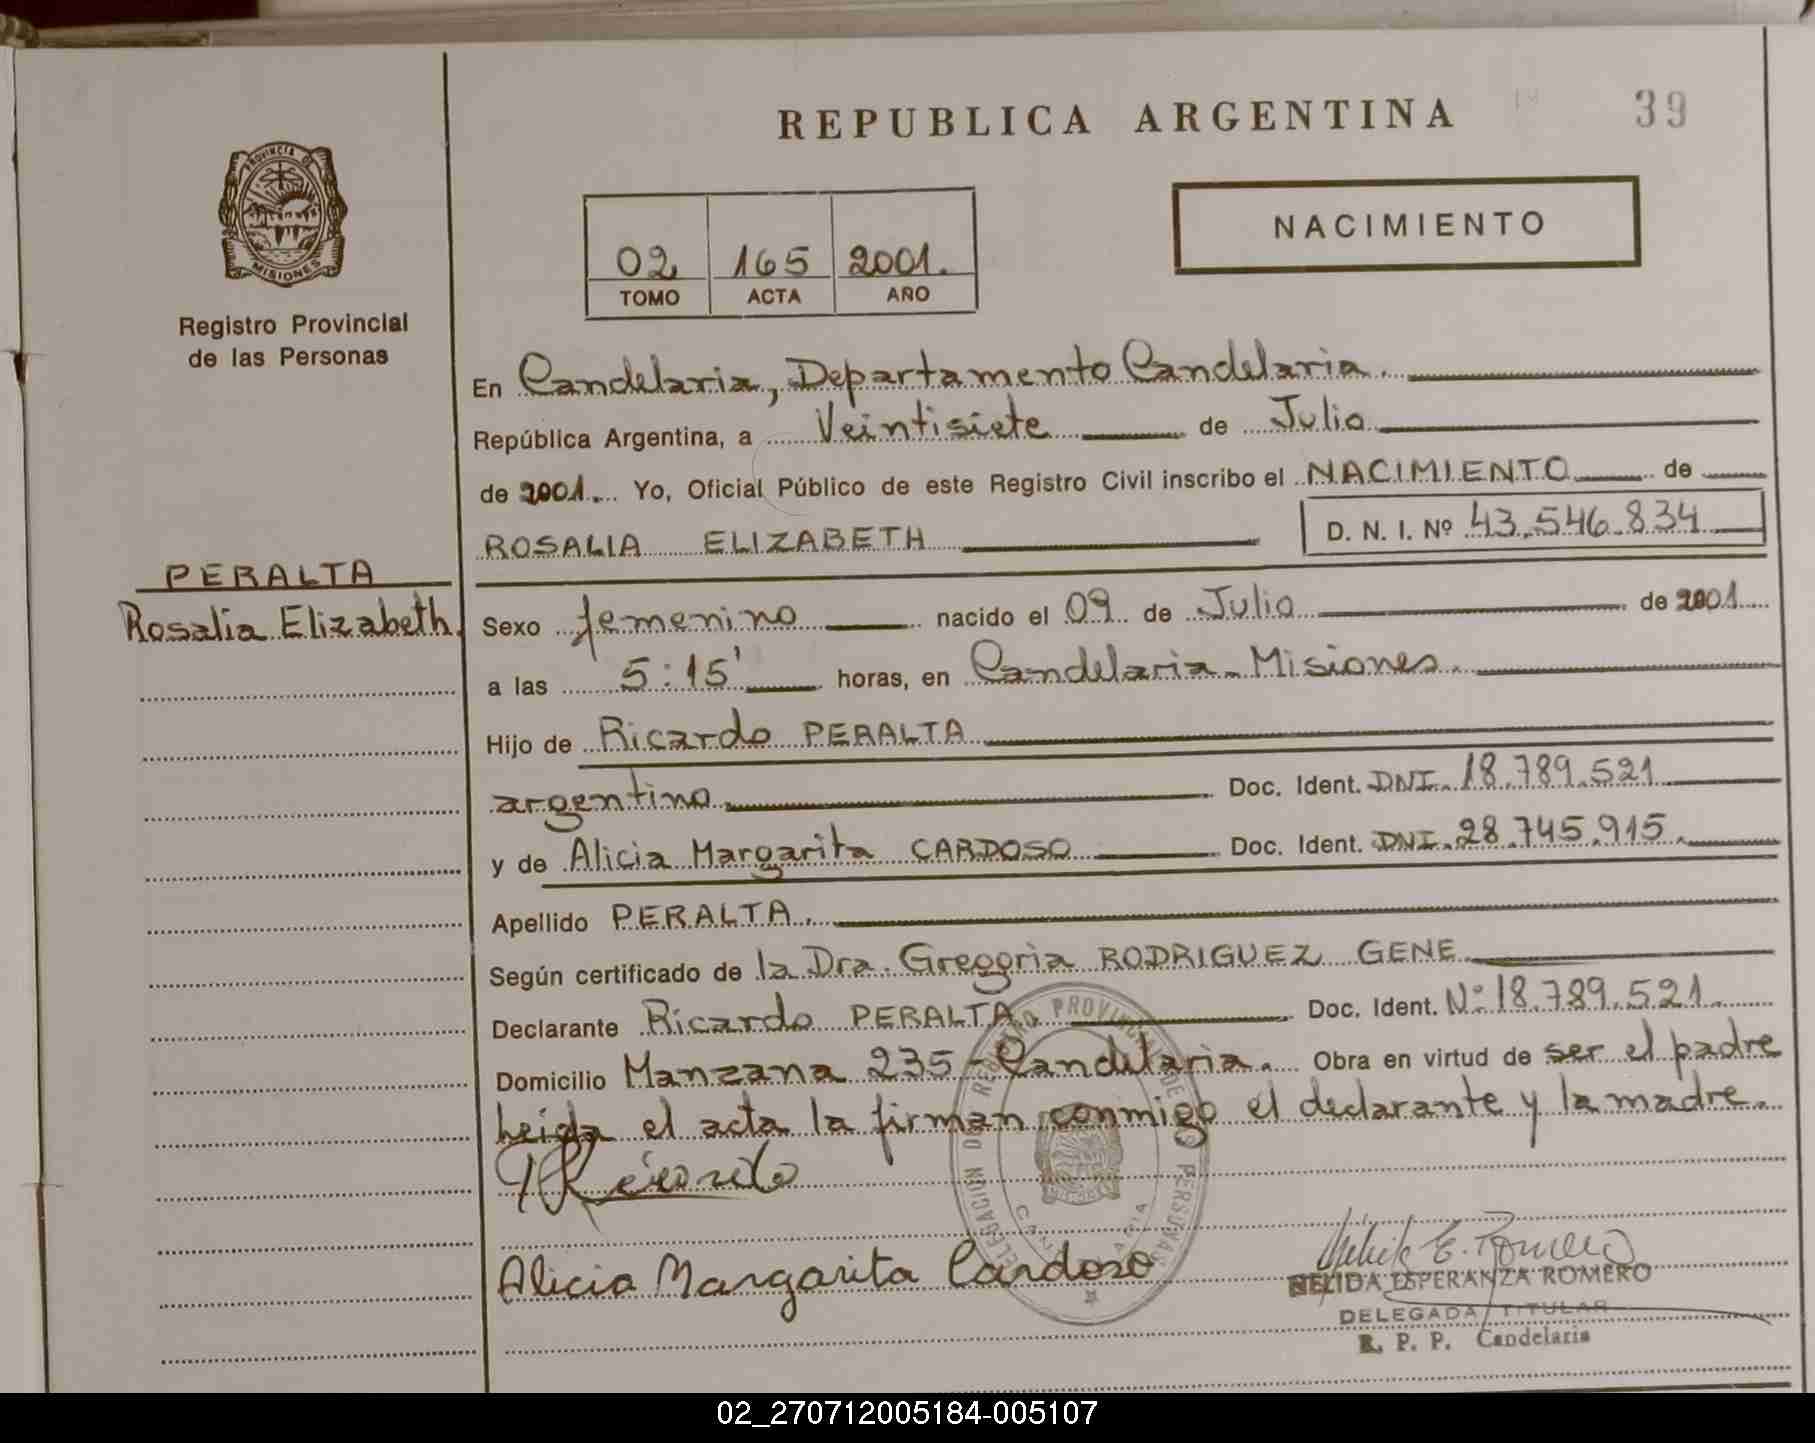 REPUBLICA ARGENTINA
39
PROVINCIA DE
MISIONES
Registro Provincial
de las Personas
02 165 2001.
TOMO ACTA AÑO
NACIMIENTO
En Candelaria, Departamento Candelaria.
República Argentina, a Veintisiete de Julio
de 2001. Yo, Oficial Público de este Registro Civil inscribo el NACIMIENTO de
ROSALIA ELIZABETH D. N. I. Nº 43.546.834
PERALTA
Rosalia Elizabeth.
Sexo femenino nacido el 09 de Julio de 2001
a las 5:15' horas, en Candelaria - Misiones.
Hijo de Ricardo PERALTA
argentino Doc. Ident. DNI. 18.789.521
y de Alicia Margarita CARDOSO Doc. Ident. DNI. 28.745.915.
Apellido PERALTA.
Según certificado de la Dra. Gregoria RODRIGUEZ GENE
Declarante Ricardo PERALTA. Doc. Ident. Nº 18.789.521
Domicilio Manzana 235 - Candelaria. Obra en virtud de ser el padre
Leida el acta la firman conmigo el declarante y la madre.
DELEGACION DEL REGISTRO PROVINCIAL DE LAS PERSONAS
Ricardo
Alicia Margarita Cardoso
NELIDA ESPERANZA ROMERO
DELEGADA TITULAR
R. P. P. Candelaria
02_270712005184-005107